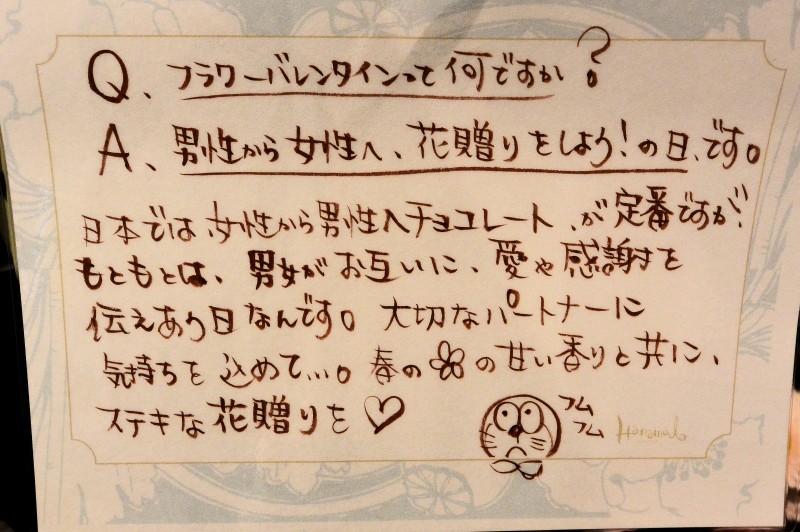 Q、フラワーバレンタインって何ですか?
A、男性から女性へ、花贈りをしよう!の日、です。
日本では、女性から男性へチョコレート、が定番ですが、
もともとは、男女がお互いに、愛や感謝を
伝えあう日なんです。大切なパートナーに
気持ちを込めて...。春の の甘い香りと共に、
ステキな花贈りを♡
フム
フム